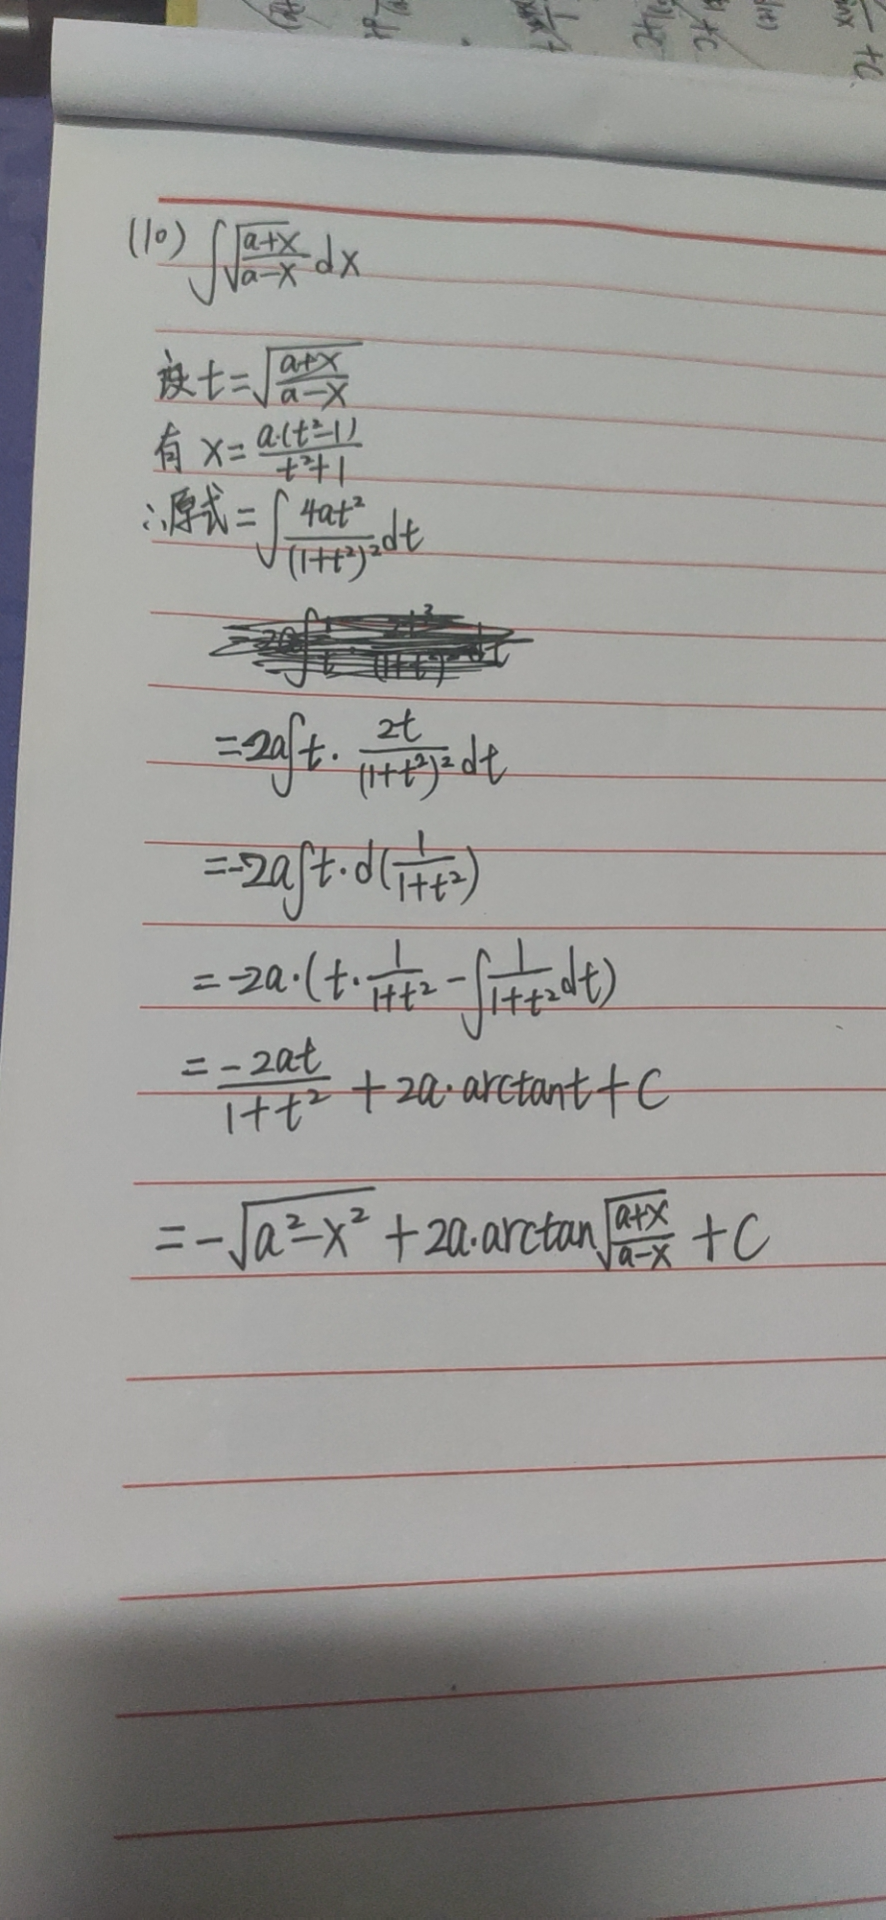 (10) ∫√((a+x)/(a-x)) dx
设 t=√((a+x)/(a-x))
有 x= a·(t²-1)/(t²+1)
∴原式=∫ 4at²/(1+t²)² dt
=2a∫t· 2t/(1+t²)² dt
=-2a∫t·d(1/(1+t²))
=-2a·(t· 1/(1+t²) -∫ 1/(1+t²) dt)
= -2at/(1+t²) +2a·arctant+C
=-√(a²-x²) +2a·arctan√((a+x)/(a-x)) +C